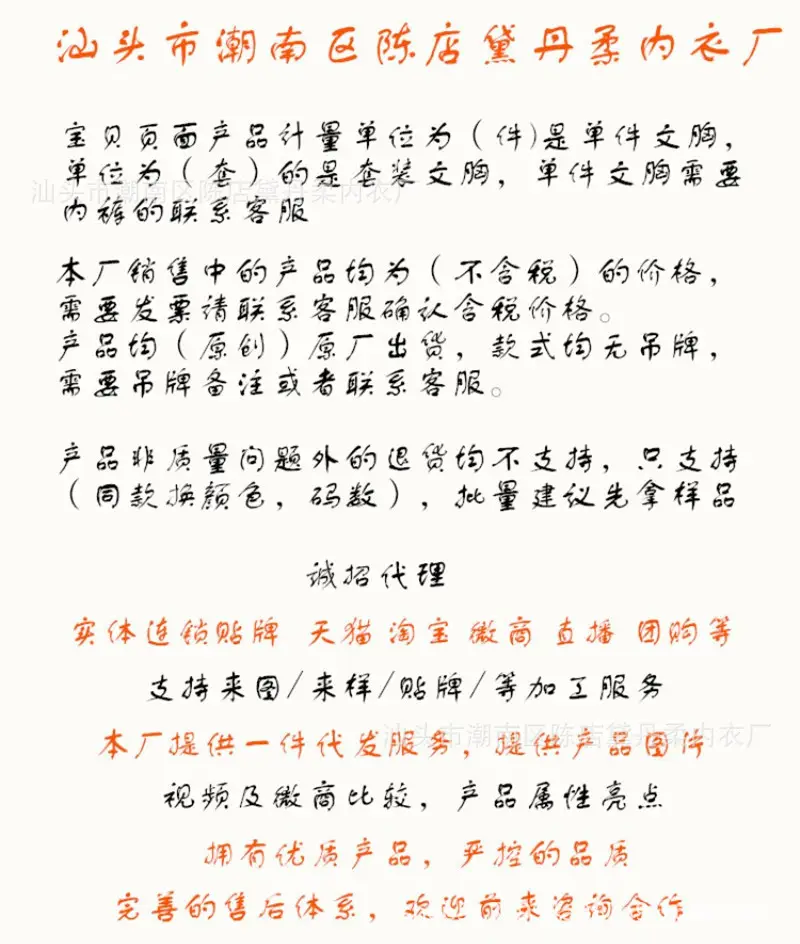 汕头市潮南区陈店黛丹柔内衣厂
宝贝页面产品计量单位为（件)是单件文胸，
单位为（套）的是套装文胸，单件文胸需要
汕头市潮南区陈店黛丹柔内衣厂
内裤的联系客服
本厂销售中的产品均为（不含税）的价格，
需要发票请联系客服确认含税价格。
产品均（原创）原厂出货，款式均无吊牌，
需要吊牌备注或者联系客服。
产品非质量问题外的退货均不支持，只支持
（同款换颜色，码数），批量建议先拿样品
诚招代理
实体连锁贴牌 天猫 淘宝 微商 直播 团购等
支持来图/来样/贴牌/等加工服务
汕头市潮南区陈店黛丹柔内衣厂
本厂提供一件代发服务，提供产品图片
视频及微商比较，产品属性亮点
拥有优质产品，严控的品质
完善的售后体系，欢迎前来咨询合作